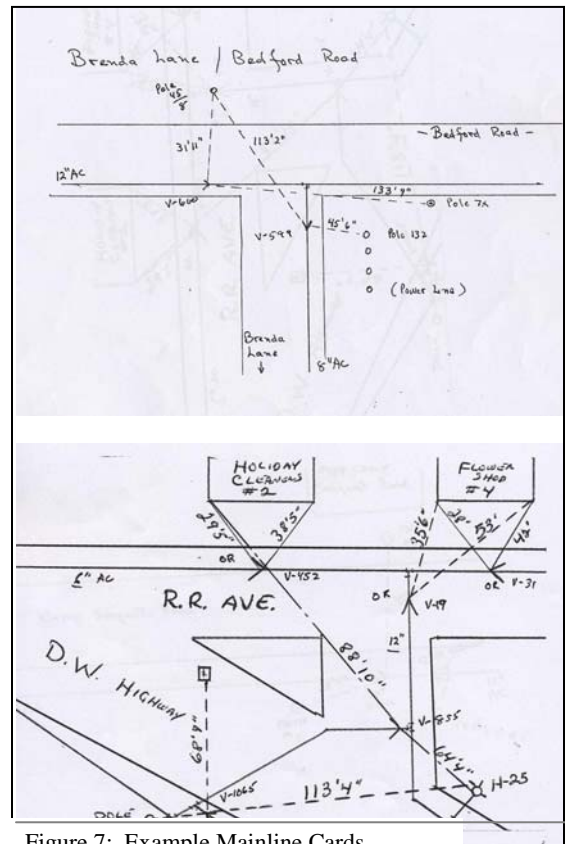 Brenda Lane / Bedford Road
Pole
45/8
31'11"
113'2"
- Bedford Road -
12"AC
133'9"
V-600
Pole 7x
V-599
45'6"
Pole 132
(Power Line)
Brenda
Lane
8"AC
HOLIDAY
CLEANERS
#2
FLOWER
SHOP
#4
29'5"
38'5"
35'6"
28'
42'
OR
V-452
6" AC
OR
V-19
OR
V-31
R.R. AVE.
12"
D.W. HIGHWAY
88'10"
68'4"
V-855
64'4"
V-1065
113'4"
H-25
POLE
Figure 7: Example Mainline Cards